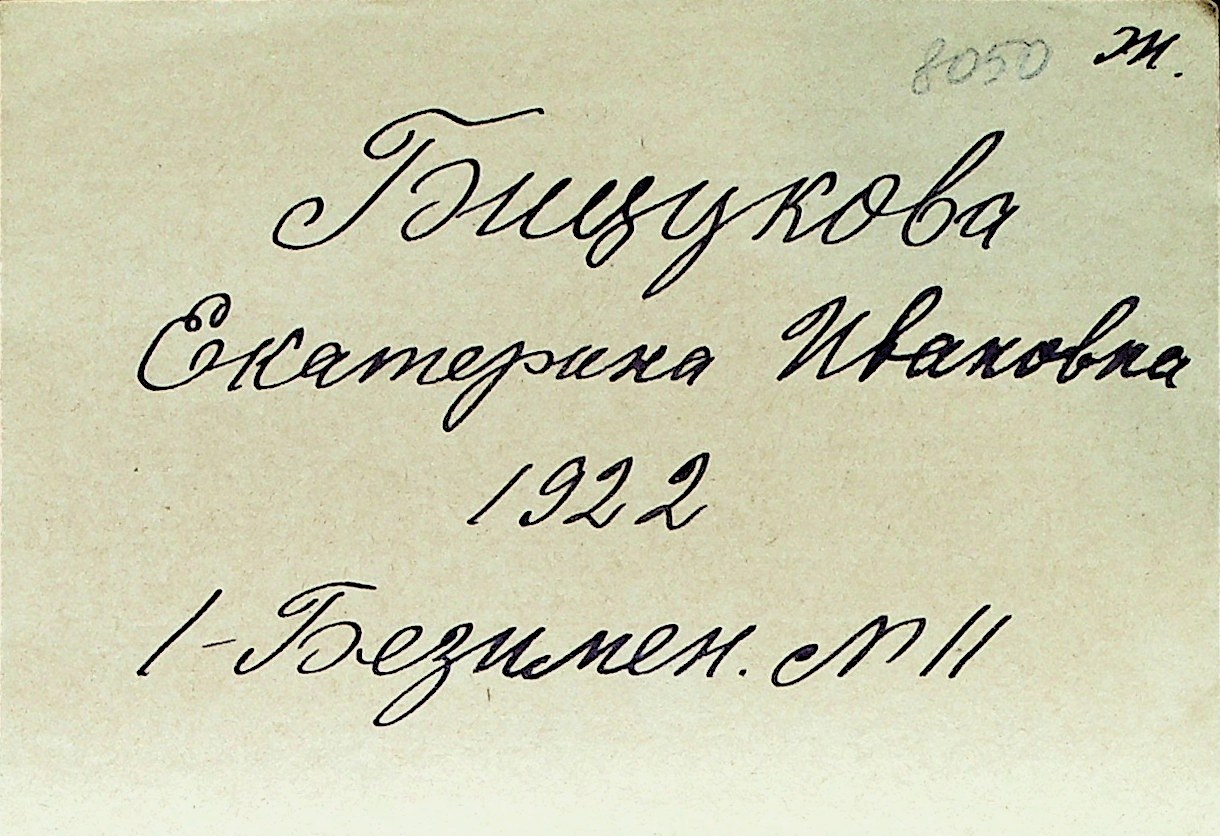 8050 ж.
Бищукова
Екатерина Ивановна
1922
1-Безимен. № 11